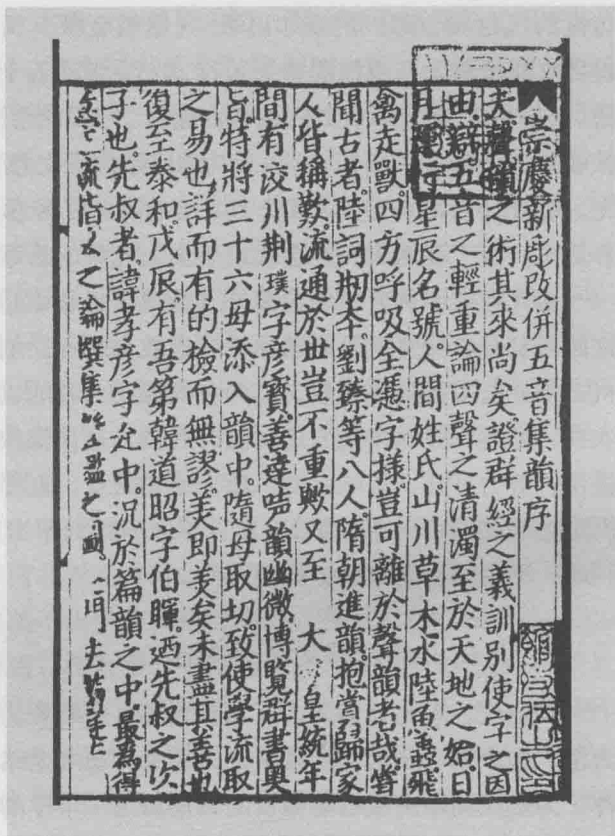 崇慶新彫改併五音集韻序
夫聲韻之術其來尚矣證群經之義訓別使字之因
由辯五音之輕重論四聲之清濁至於天地之始日
月星辰名號人間姓氏山川草木水陸魚蟲飛
禽走獸四方呼吸全憑字樣豈可離於聲韻者哉嘗
聞古者陸詞刱本劉臻等八人隋朝進韻抱賞歸家
人皆稱歎流通於世豈不重歟又至 大 皇統年
間有洨川荊璞字彥寶善達聲韻幽微博覽群書奧
旨特將三十六母添入韻中隨母取切致使學流取
之易也詳而有的撿而無謬美即美矣未盡其善也
復至泰和戊辰有吾弟韓道昭字伯暉迺先叔之次
子也先叔者諱孝彥字允中況於篇韻之中最為得
流 之論撰集 之